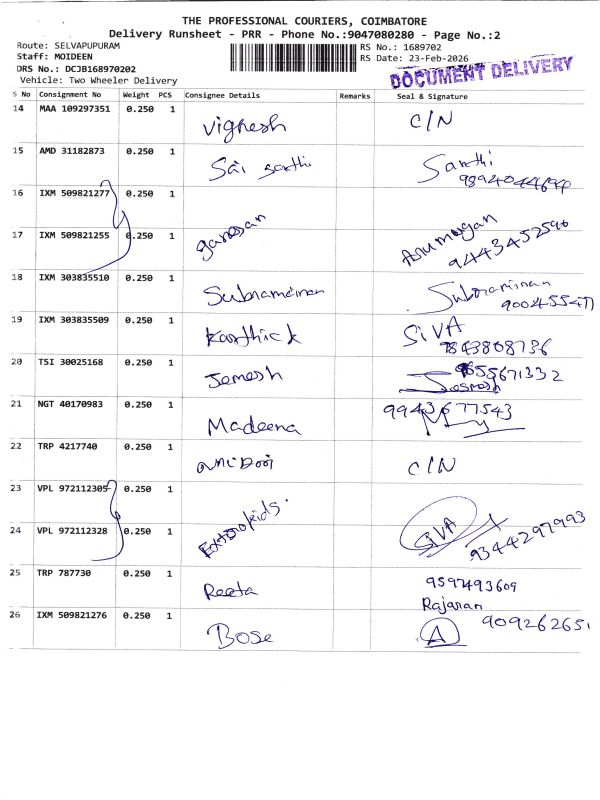 THE PROFESSIONAL COURIERS, COIMBATORE
Delivery Runsheet - PRR - Phone No.:9047080280 - Page No.:2
Route: SELVAPUPURAM
Staff: MOIDEEN
DRS No.: DCJB168970202
Vehicle: Two Wheeler Delivery
RS No.: 1689702
RS Date: 23-Feb-2026
DOCUMENT DELIVERY
S No Consignment No Weight PCS Consignee Details Remarks Seal & Signature
14 MAA 109297351 0.250 1 Vignesh C/N
15 AMD 31182873 0.250 1 Sai Santhi Santhi
16 IXM 509821277 0.250 1
17 IXM 509821255 0.250 1 ganesan Arumugan 9443452596
18 IXM 303835510 0.250 1
19 IXM 303835509 0.250 1 Karthick SIVA 7843808736
20 TSI 30025168 0.250 1 Jemesh
21 NGT 40170983 0.250 1 Madeena 9943677543
22 TRP 4217740 0.250 1 C/N
23 VPL 972112305 0.250 1
24 VPL 972112328 0.250 1 SIVA 9344297993
25 TRP 787730 0.250 1 Reeta 9597493609
Rajaran
26 IXM 509821276 0.250 1 Bose A 909262651